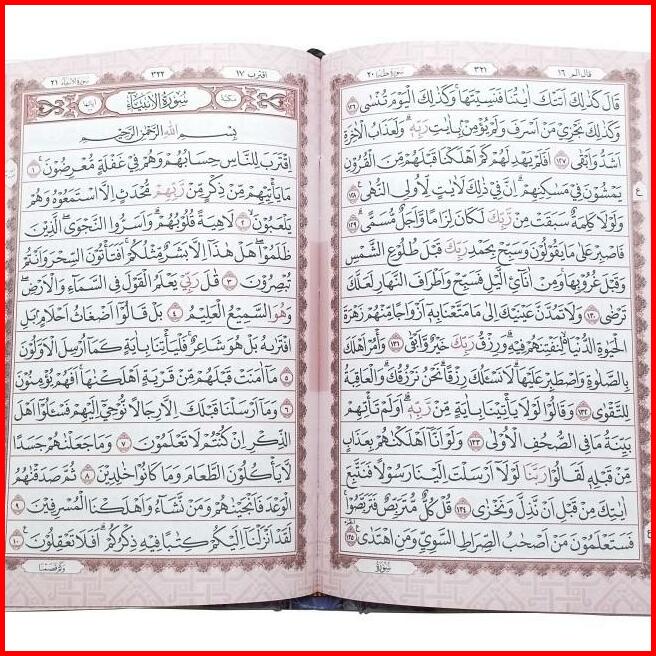 قال الم ١٦ ٣٢١ سورة طه ٢٠
قَالَ كَذٰلِكَ اَتَتْكَ اٰيَاتُنَا فَنَسِيتَهَاۚ وَكَذٰلِكَ الْيَوْمَ تُنْسٰى ﴿١٢٦﴾
وَكَذٰلِكَ نَجْزِي مَنْ اَسْرَفَ وَلَمْ يُؤْمِنْ بِاٰيَاتِ رَبِّهِۜ وَلَعَذَابُ الْاٰخِرَةِ
اَشَدُّ وَاَبْقٰى ﴿١٢٧﴾ اَفَلَمْ يَهْدِ لَهُمْ كَمْ اَهْلَكْنَا قَبْلَهُمْ مِنَ الْقُرُونِ
يَمْشُونَ فِي مَسَاكِنِهِمْۜ اِنَّ فِي ذٰلِكَ لَاٰيَاتٍ لِاُولِي النُّهٰى ﴿١٢٨﴾
وَلَوْلَا كَلِمَةٌ سَبَقَتْ مِنْ رَبِّكَ لَكَانَ لِزَامًا وَاَجَلٌ مُسَمًّىۜ ﴿١٢٩﴾
فَاصْبِرْ عَلٰى مَا يَقُولُونَ وَسَبِّحْ بِحَمْدِ رَبِّكَ قَبْلَ طُلُوعِ الشَّمْسِ
وَقَبْلَ غُرُوبِهَاۚ وَمِنْ اٰنَائِ الَّيْلِ فَسَبِّحْ وَاَطْرَافَ النَّهَارِ لَعَلَّكَ
تَرْضٰى ﴿١٣٠﴾ وَلَا تَمُدَّنَّ عَيْنَيْكَ اِلٰى مَا مَتَّعْنَا بِهِ اَزْوَاجًا مِنْهُمْ زَهْرَةَ
الْحَيٰوةِ الدُّنْيَا لِنَفْتِنَهُمْ فِيهِۜ وَرِزْقُ رَبِّكَ خَيْرٌ وَاَبْقٰى ﴿١٣١﴾ وَأْمُرْ اَهْلَكَ
بِالصَّلٰوةِ وَاصْطَبِرْ عَلَيْهَاۜ لَا نَسْـَٔلُكَ رِزْقًاۜ نَحْنُ نَرْزُقُكَۜ وَالْعَاقِبَةُ
لِلتَّقْوٰى ﴿١٣٢﴾ وَقَالُوا لَوْلَا يَأْتِينَا بِاٰيَةٍ مِنْ رَبِّهِۜ اَوَلَمْ تَأْتِهِمْ
بَيِّنَةُ مَا فِي الصُّحُفِ الْاُولٰى ﴿١٣٣﴾ وَلَوْ اَنَّا اَهْلَكْنَاهُمْ بِعَذَابٍ
مِنْ قَبْلِهِ لَقَالُوا رَبَّنَا لَوْلَا اَرْسَلْتَ اِلَيْنَا رَسُولًا فَنَتَّبِعَ
اٰيَاتِكَ مِنْ قَبْلِ اَنْ نَذِلَّ وَنَخْزٰى ﴿١٣٤﴾ قُلْ كُلٌّ مُتَرَبِّصٌ فَتَرَبَّصُواۚ
فَسَتَعْلَمُونَ مَنْ اَصْحَابُ الصِّرَاطِ السَّوِيِّ وَمَنِ اهْتَدٰى ﴿١٣٥﴾
سُورَةُ
اقترب ١٧ ٣٢٢ سورة الانبياء ٢١
مكية سُورَةُ الْاَنْبِيَاءِ اياتها
بِسْمِ اللهِ الرَّحْمٰنِ الرَّحِيمِ
اِقْتَرَبَ لِلنَّاسِ حِسَابُهُمْ وَهُمْ فِي غَفْلَةٍ مُعْرِضُونَۚ ﴿١﴾
مَا يَأْتِيهِمْ مِنْ ذِكْرٍ مِنْ رَبِّهِمْ مُحْدَثٍ اِلَّا اسْتَمَعُوهُ وَهُمْ
يَلْعَبُونَۙ ﴿٢﴾ لَاهِيَةً قُلُوبُهُمْۜ وَاَسَرُّوا النَّجْوٰىۗ الَّذِينَ
ظَلَمُواۗ هَلْ هٰذَا اِلَّا بَشَرٌ مِثْلُكُمْۚ اَفَتَأْتُونَ السِّحْرَ وَاَنْتُمْ
تُبْصِرُونَ ﴿٣﴾ قَالَ رَبِّي يَعْلَمُ الْقَوْلَ فِي السَّمَاءِ وَالْاَرْضِۘ
وَهُوَ السَّمِيعُ الْعَلِيمُ ﴿٤﴾ بَلْ قَالُوا اَضْغَاثُ اَحْلَامٍ بَلِ
افْتَرٰيهُ بَلْ هُوَ شَاعِرٌۚ فَلْيَأْتِنَا بِاٰيَةٍ كَمَا اُرْسِلَ الْاَوَّلُونَ
﴿٥﴾ مَا اٰمَنَتْ قَبْلَهُمْ مِنْ قَرْيَةٍ اَهْلَكْنَاهَاۚ اَفَهُمْ يُؤْمِنُونَ
﴿٦﴾ وَمَا اَرْسَلْنَا قَبْلَكَ اِلَّا رِجَالًا نُوحِي اِلَيْهِمْ فَسْـَٔلُوا اَهْلَ
الذِّكْرِ اِنْ كُنْتُمْ لَا تَعْلَمُونَ ﴿٧﴾ وَمَا جَعَلْنَاهُمْ جَسَدًا
لَا يَأْكُلُونَ الطَّعَامَ وَمَا كَانُوا خَالِدِينَ ﴿٨﴾ ثُمَّ صَدَقْنَاهُمُ
الْوَعْدَ فَاَنْجَيْنَاهُمْ وَمَنْ نَشَاءُ وَاَهْلَكْنَا الْمُسْرِفِينَ ﴿٩﴾
لَقَدْ اَنْزَلْنَا اِلَيْكُمْ كِتَابًا فِيهِ ذِكْرُكُمْۜ اَفَلَا تَعْقِلُونَ ﴿١٠﴾
وَكَمْ قَصَمْنَا